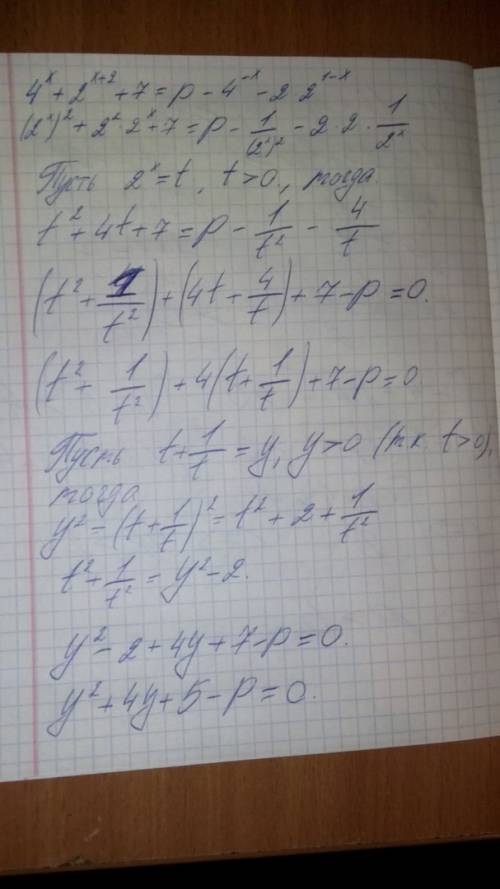 4^x + 2^(x+2) + 7 = p - 4^(-x) - 2·2^(1-x)
(2^x)^2 + 2^2·2^x + 7 = p - 1/(2^x)^2 - 2·2·1/2^x
Пусть 2^x = t, t > 0, тогда
t^2 + 4t + 7 = p - 1/t^2 - 4/t
(t^2 + 1/t^2) + (4t + 4/t) + 7 - p = 0.
(t^2 + 1/t^2) + 4(t + 1/t) + 7 - p = 0
Пусть t + 1/t = y, y > 0 (т.к t > 0),
тогда
y^2 = (t + 1/t)^2 = t^2 + 2 + 1/t^2
t^2 + 1/t^2 = y^2 - 2.
y^2 - 2 + 4y + 7 - p = 0.
y^2 + 4y + 5 - p = 0.